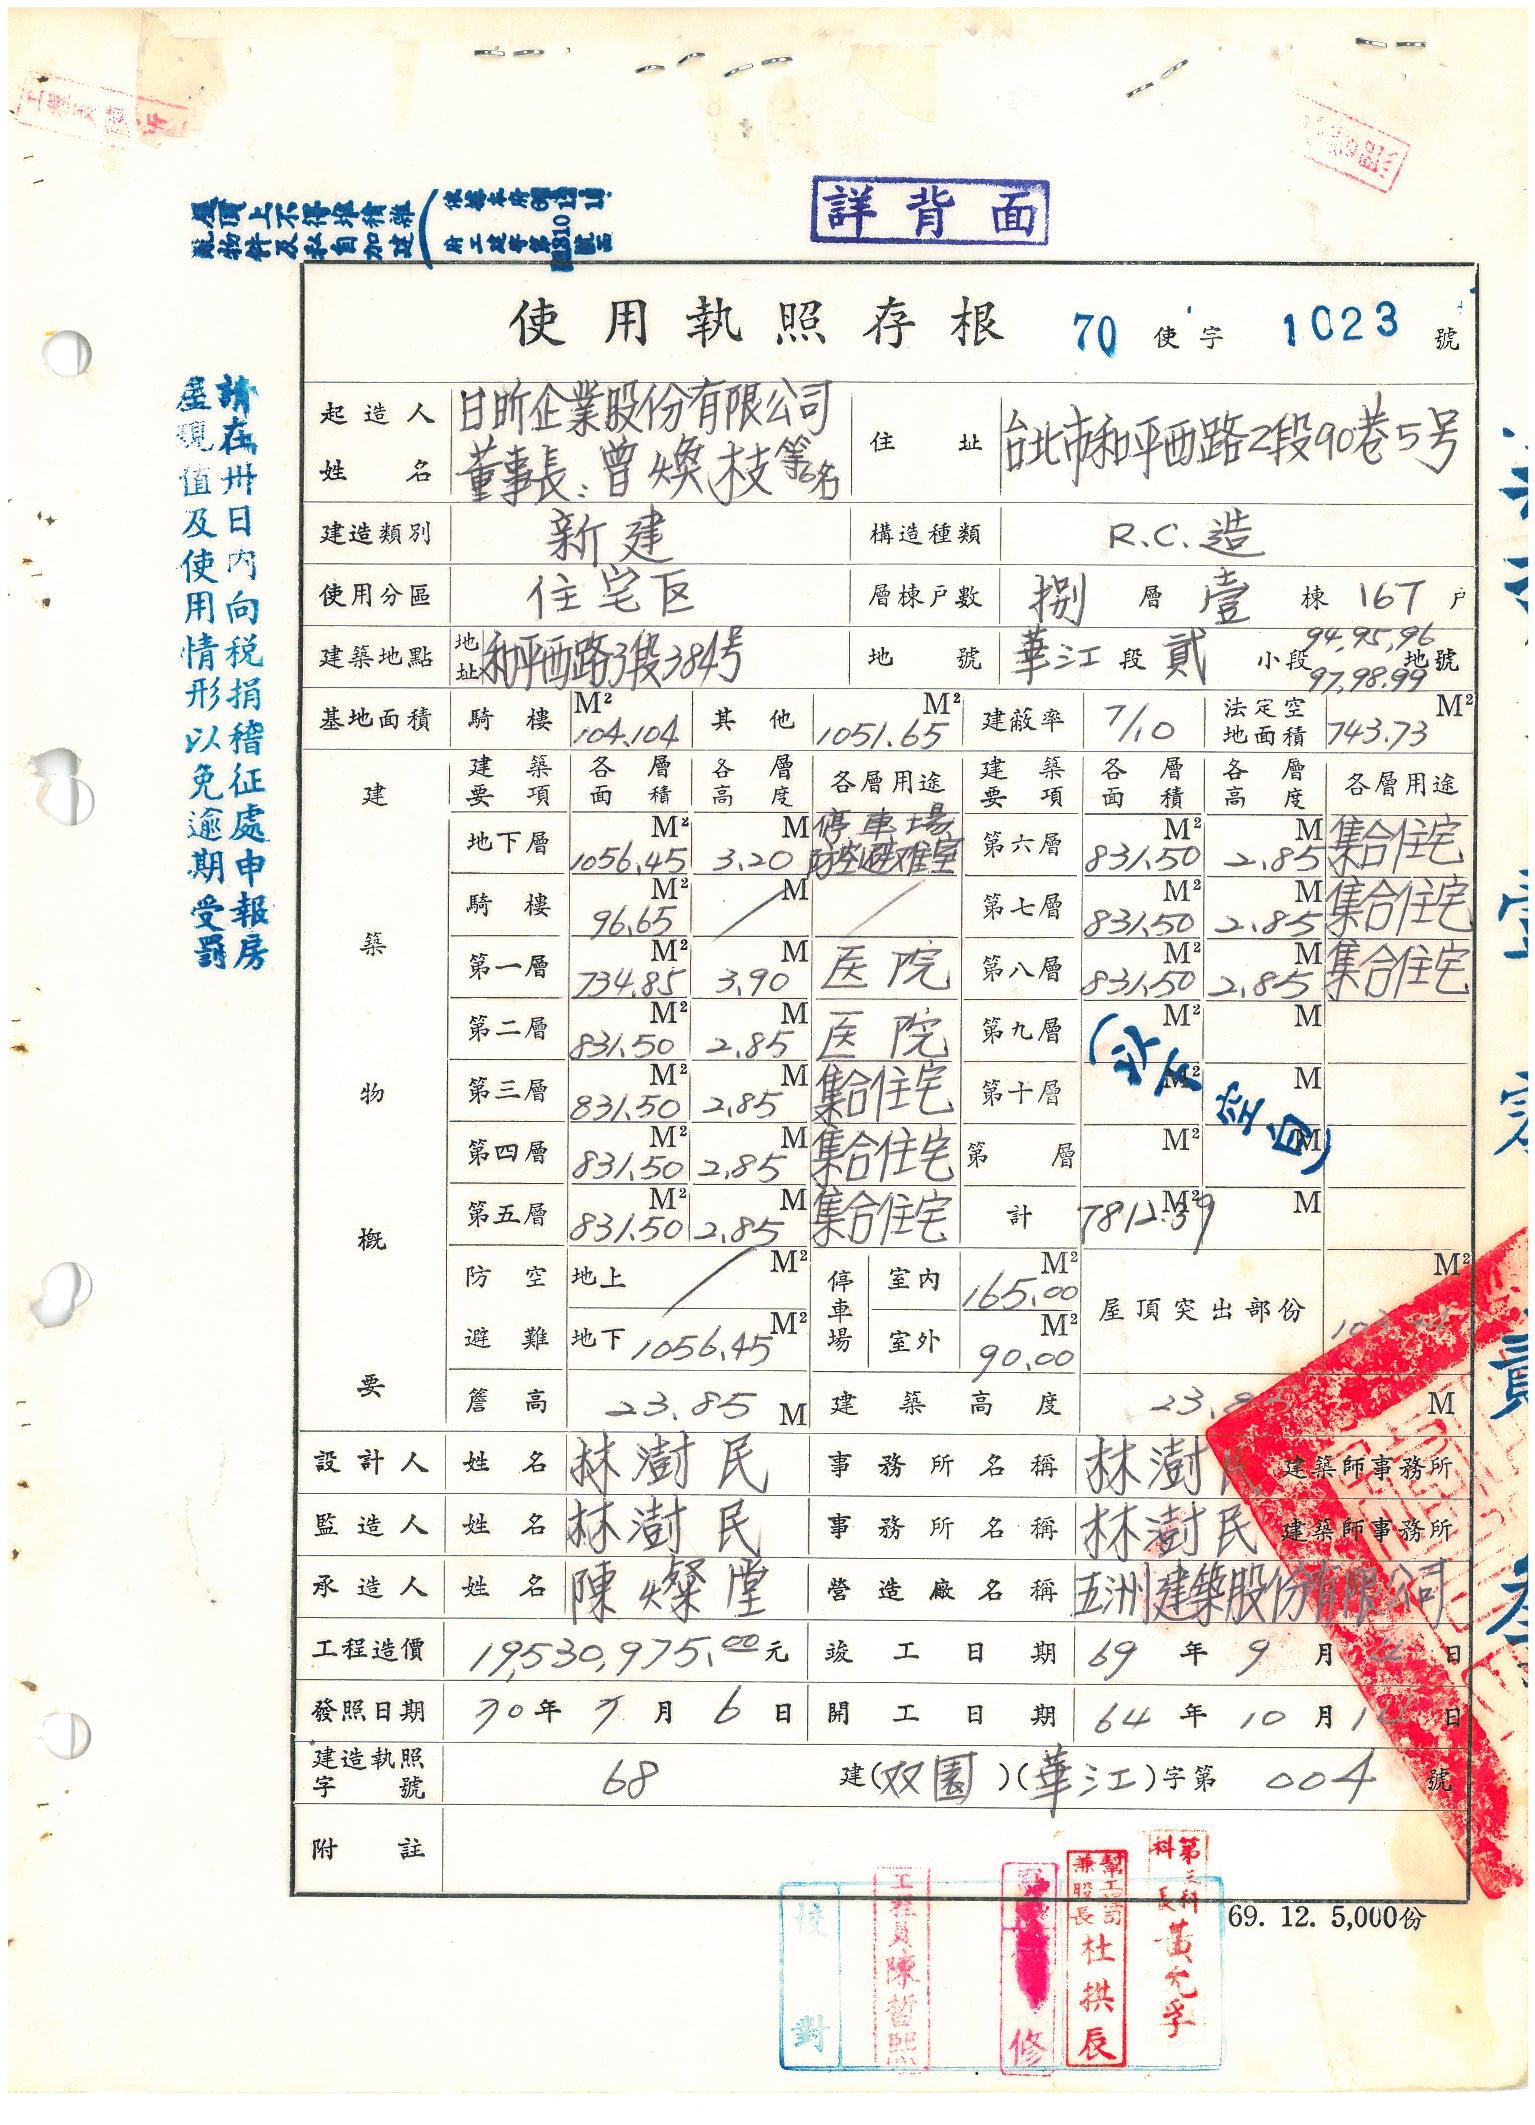 詳背面
屋頂上不得堆積雜
使用執照存根 70 使字 1023 號
請在卅日內向稅捐稽征處申報房
屋現值及使用情形以免逾期受罰
起造人姓名 日昕企業股份有限公司
董事長:曾煥枝等6名
住址 台北市和平西路2段90巷5号
建造類別 新建 構造種類 R.C.造
使用分區 住宅区 層棟戶數 捌層壹棟167戶
建築地點 地址 和平西路3段384号 地號 華江段貳小段 94,95,96 97,98,99 地號
基地面積 騎樓 104.104 M² 其他 1051.65 M² 建蔽率 7/10 法定空地面積 743.73 M²
建築物概要
建築要項 各層面積 各層高度 各層用途 建築要項 各層面積 各層高度 各層用途
地下層 1056.45 M² 3.20 M 停車場 防空避难室 第六層 831.50 M² 2.85 M 集合住宅
騎樓 96.65 M² / M / 第七層 831.50 M² 2.85 M 集合住宅
第一層 734.85 M² 3.90 M 医院 第八層 831.50 M² 2.85 M 集合住宅
第二層 831.50 M² 2.85 M 医院 第九層 M² M
第三層 831.50 M² 2.85 M 集合住宅 第十層 M² M
(以下空白)
第四層 831.50 M² 2.85 M 集合住宅 第 層 M² M
第五層 831.50 M² 2.85 M 集合住宅 計 7812.39 M² M
防空避難 地上 / M² 停車場 室內 165.00 M² 屋頂突出部份 M²
地下 1056.45 M² 室外 90.00 M²
簷高 23.85 M 建築高度 23.85 M
設計人 姓名 林澍民 事務所名稱 林澍民 建築師事務所
監造人 姓名 林澍民 事務所名稱 林澍民 建築師事務所
承造人 姓名 陳燦堂 營造廠名稱 五洲建築股份有限公司
工程造價 19,530,975.00元 竣工日期 69年9月 日
發照日期 70年7月6日 開工日期 64年10月14日
建造執照字號 68 建(双園)(華江)字第004號
附註
69. 12. 5,000份
校對
工程員陳哲熙
修
幫工程司兼股長杜拱辰
第三科科長黃允孚